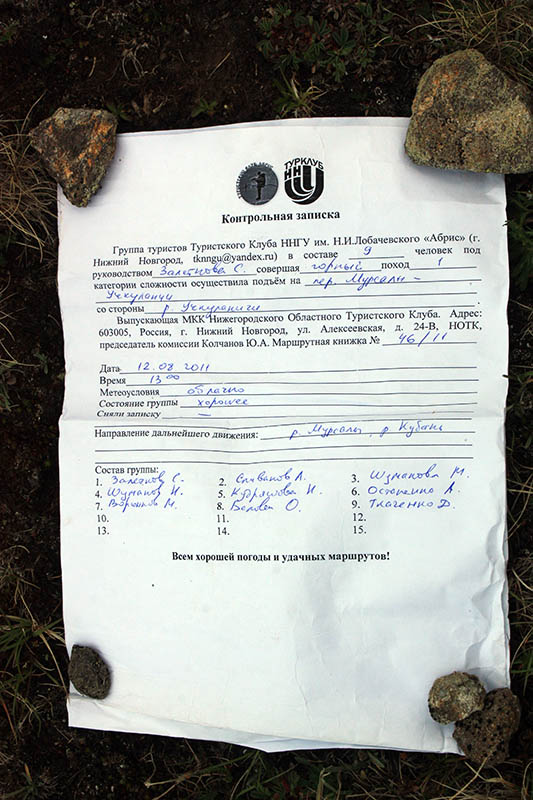 ТУРКЛУБ
ННГУ
Контрольная записка
Группа туристов Туристского Клуба ННГУ им. Н.И.Лобачевского «Абрис» (г.
Нижний Новгород, tknngu@yandex.ru) в составе 9 человек под
руководством Залетнова С. совершая горный поход 1
категории сложности осуществила подъём на пер. Мурсалы –
Учкуланичи
со стороны р. Учкуланичи
Выпускающая МКК Нижегородского Областного Туристского Клуба. Адрес:
603005, Россия, г. Нижний Новгород, ул. Алексеевская, д. 24-В, НОТК,
председатель комиссии Колчанов Ю.А. Маршрутная книжка № 46/11
Дата 12.08 2011
Время 13 00
Метеоусловия облачно
Состояние группы хорошее
Сняли записку —
Направление дальнейшего движения: р. Мурсалы, р Кубань
Состав группы:
1. Залетнов С. 2. Л. 3. Шуманова М.
4. Шуманов И. 5. Кудряшова И. 6. Остапенко А.
7. Воронков М. 8. О. 9. Ткаченко Д.
10. 11. 12.
13. 14. 15.
Всем хорошей погоды и удачных маршрутов!